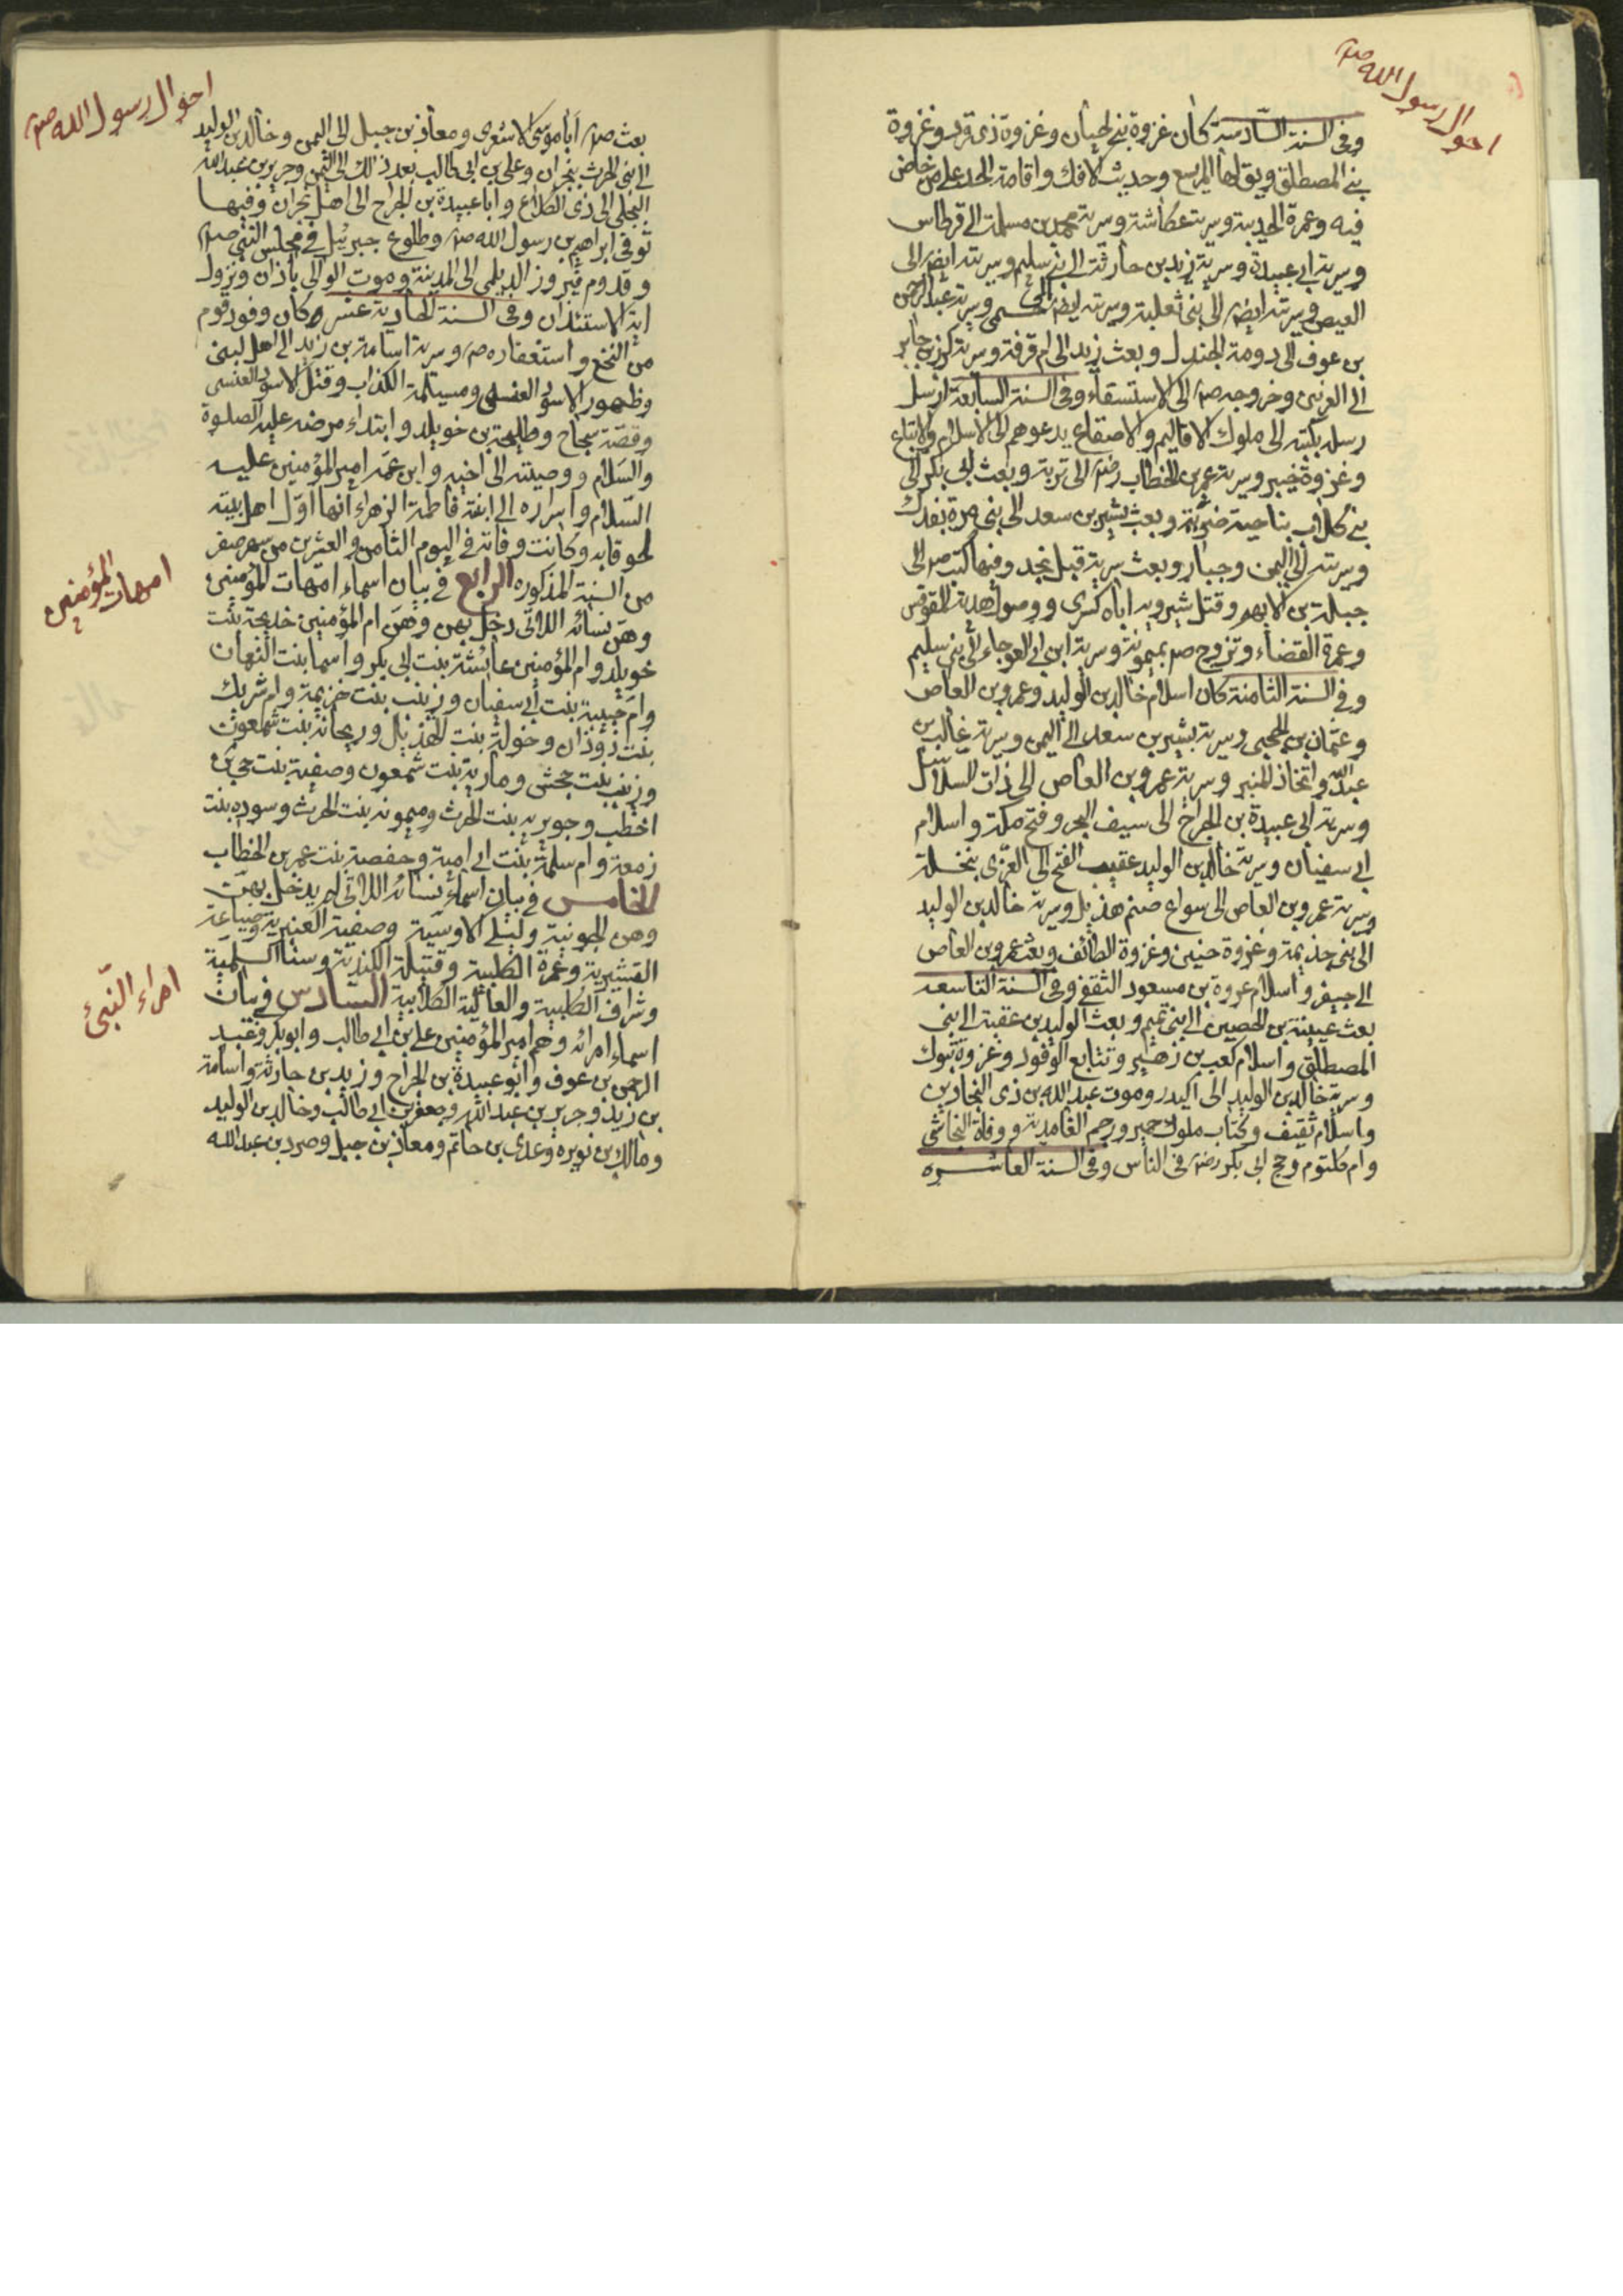 احوال رسول الله صم
وفى السنة السادسة كان غزوة بنى لحيان وغزوة ذى قرد وغزوة
بنى المصطلق ويق لها المريسع وحديث الافك واقامة الحد على من خاض
فيه وعمرة الحديبية وسرية عكاشة وسرية محمد بن مسلمة الى قرطاس
وسرية ابى عبيدة وسرية زيد بن حارثة الى بنى سليم وسريته ايض الى
العيص وسريته ايض الى بنى ثعلبة وسريته ايض الى حسمى وسرية عبد الرحمن
بن عوف الى دومة الجندل وبعث زيد الى ام قرفة وسرية كرز بن جابر
الى العرنيين وخروجه صم الى الاستسقاء وفى السنة السابعة ارسل
رسله بكتبه الى ملوك الاقاليم والاصقاع يدعوهم الى الاسلام والاتباع
وغزوة خيبر وسرية عمر بن الخطاب رض الى تربة وبعث ابى بكر الى
بنى كلاب بناحية ضرية وبعث بشير بن سعد الى بنى مرة بفدك
وسريته الى اليمن وجبار وبعث سرية قبل نجد وفيها كتب صم الى
جبلة بن الايهم وقتل شيرويه اباه كسرى ووصول هدية المقوقس
وعمرة القضاء وتزوج صم بميمونة وسرية ابن ابى العوجاء الى بنى سليم
وفى السنة الثامنة كان اسلام خالد بن الوليد وعمرو بن العاص
وعثمان بن الحجبى وسرية بشير بن سعد الى اليمن وسرية غالب بن
عبد الله واتخاذ المنبر وسرية عمرو بن العاص الى ذات السلاسل
وسرية ابى عبيدة بن الجراح الى سيف البحر وفتح مكة واسلام
ابى سفيان وسرية خالد بن الوليد عقيب الفتح الى العزى بنخلة
وسرية عمرو بن العاص الى سواع صنم هذيل وسرية خالد بن الوليد
الى بنى جذيمة وغزوة حنين وغزوة الطائف وبعث عمرو بن العاص
الى جيفر واسلام عروة بن مسعود الثقفى وفى السنة التاسعه
بعث عيينة بن الحصين الى بنى تميم وبعث الوليد بن عقبة الى بنى
المصطلق واسلام كعب بن زهير وتتابع الوفود وغزوة تبوك
وسرية خالد بن الوليد الى اكيدر وموت عبد الله بن ذى البجادين
واسلام ثقيف وكتاب ملوك حمير ورجم الغامدية ووفاة النجاشى
وام كلثوم وحج ابى بكر رض فى الناس وفى السنة العاشره
احوال رسول الله صم
بعث صم ابا موسى الاشعرى ومعاذ بن جبل الى اليمن وخالد بن الوليد
الى بنى الحرث بنجران وعلى بن ابى طالب بعد ذالك الى اليمن وجرير بن عبد الله
البجلى الى ذى الكلاع وابا عبيدة بن الجراح الى اهل نجران وفيها
توفى ابراهيم بن رسول الله صم وطلوع جبرئيل فى مجلس النبى صم
وقدوم فيروز الديلمى الى المدينة وموت الوالى باذان ونزول
اية الاستئذان وفى السنة الحادية عشره كان وفود قوم
من النخع واستغفاره صم وسرية اسامة بن زيد الى اهل ابنى
وظهور الاسود العنسى ومسيلمة الكذاب وقتل الاسود العنسى
وقصة سجاح وطليحة بن خويلد وابتداء مرضه عليه الصلوة
والسلام ووصيته الى اخيه وابن عمه امير المؤمنين عليه
السلام واسراره الى ابنته فاطمة الزهراء انها اول اهل بيته
لحوقا به وكانت وفاته فى اليوم الثامن والعشرين من شهر صفر
من السنة المذكوره الرابع فى بيان اسماء امهات المؤمنين
امهات المؤمنين
وهن نسائه اللاتى دخل بهن وهن ام المؤمنين خديجة بنت
خويلد وام المؤمنين عائشة بنت ابى بكر واسما بنت النعمان
وام حبيبة بنت ابى سفيان وزينب بنت خزيمة وام شريك
بنت دوذان وخولة بنت الهذيل وريحانة بنت شمعون
وزينب بنت جحش ومارية بنت شمعون وصفية بنت حى بن
اخطب وجويريه بنت الحرث وميمونه بنت الحرث وسوده بنت
زمعة وام سلمة بنت ابى امية وحفصة بنت عمر بن الخطاب
الخامس فى بيان اسماء نسائه اللاتى لم يدخل بهن
وهن الجونية وليلى الاوسية وصفية العنبرية وضباعة
القشيرية وعمرة الكلبية وقتيلة الكندية وسنا السلمية
وشراف الكلبية والعالية الكلابية السادس فى بيان
امراء النبى
اسماء امرائه وهم امير المؤمنين على بن ابى طالب وابو بكر وعبد
الرحمن بن عوف وابو عبيدة بن الجراح وزيد بن حارثة واسامة
بن زيد وجرير بن عبد الله وجعفر بن ابى طالب وخالد بن الوليد
ومالك بن نويره وعدى بن حاتم ومعاذ بن جبل وصرد بن عبد الله